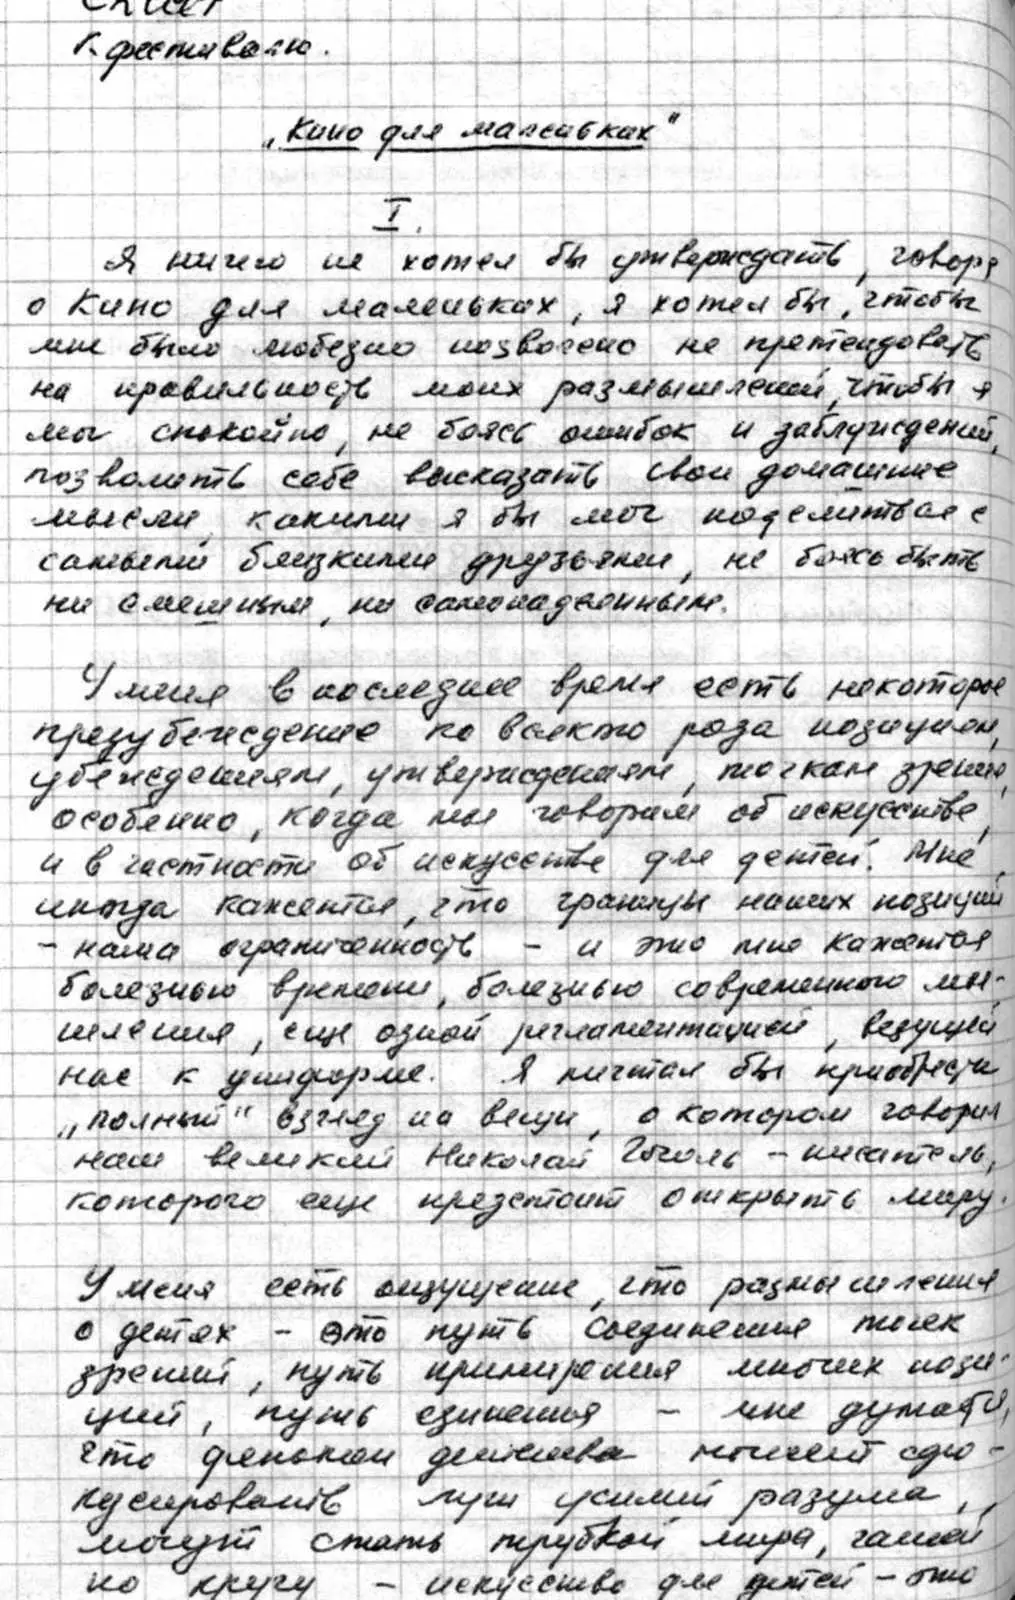 к фестивалю.
„Кино для маленьких"
I.
Я ничего не хотел бы утверждать, говоря
о Кино для маленьких, я хотел бы, чтобы
мне было любезно позволено не претендовать
на правильность моих размышлений, чтобы я
мог спокойно, не боясь ошибок и заблуждений,
позволить себе высказать свои домашние
мысли, какими я бы мог поделиться с
самыми близкими друзьями, не боясь быть
ни смешным, ни самонадеянным.
У меня в последнее время есть некоторое
предубеждение ко всякого рода позициям,
убеждениям, утверждениям, точкам зрения,
особенно, когда мы говорим об искусстве,
и в частности об искусстве для детей. Мне
иногда кажется, что границы наших позиций
– наша ограниченность – и это мне кажется
болезнью времени, болезнью современного мы-
шления, еще одной регламентацией, ведущей
нас к униформе. Я мечтал бы приобрести
„полный" взгляд на вещи, о котором говорил
наш великий Николай Гоголь – писатель,
которого еще предстоит открыть миру.
У меня есть ощущение, что размышления
о детях – это путь соединения точек
зрений, путь примирения многих пози-
ций, путь единения – мне думается,
что феномен детства может сфо-
кусировать лучи усилий разума,
могут стать трубкой мира, чашей
по кругу – искусство для детей – это